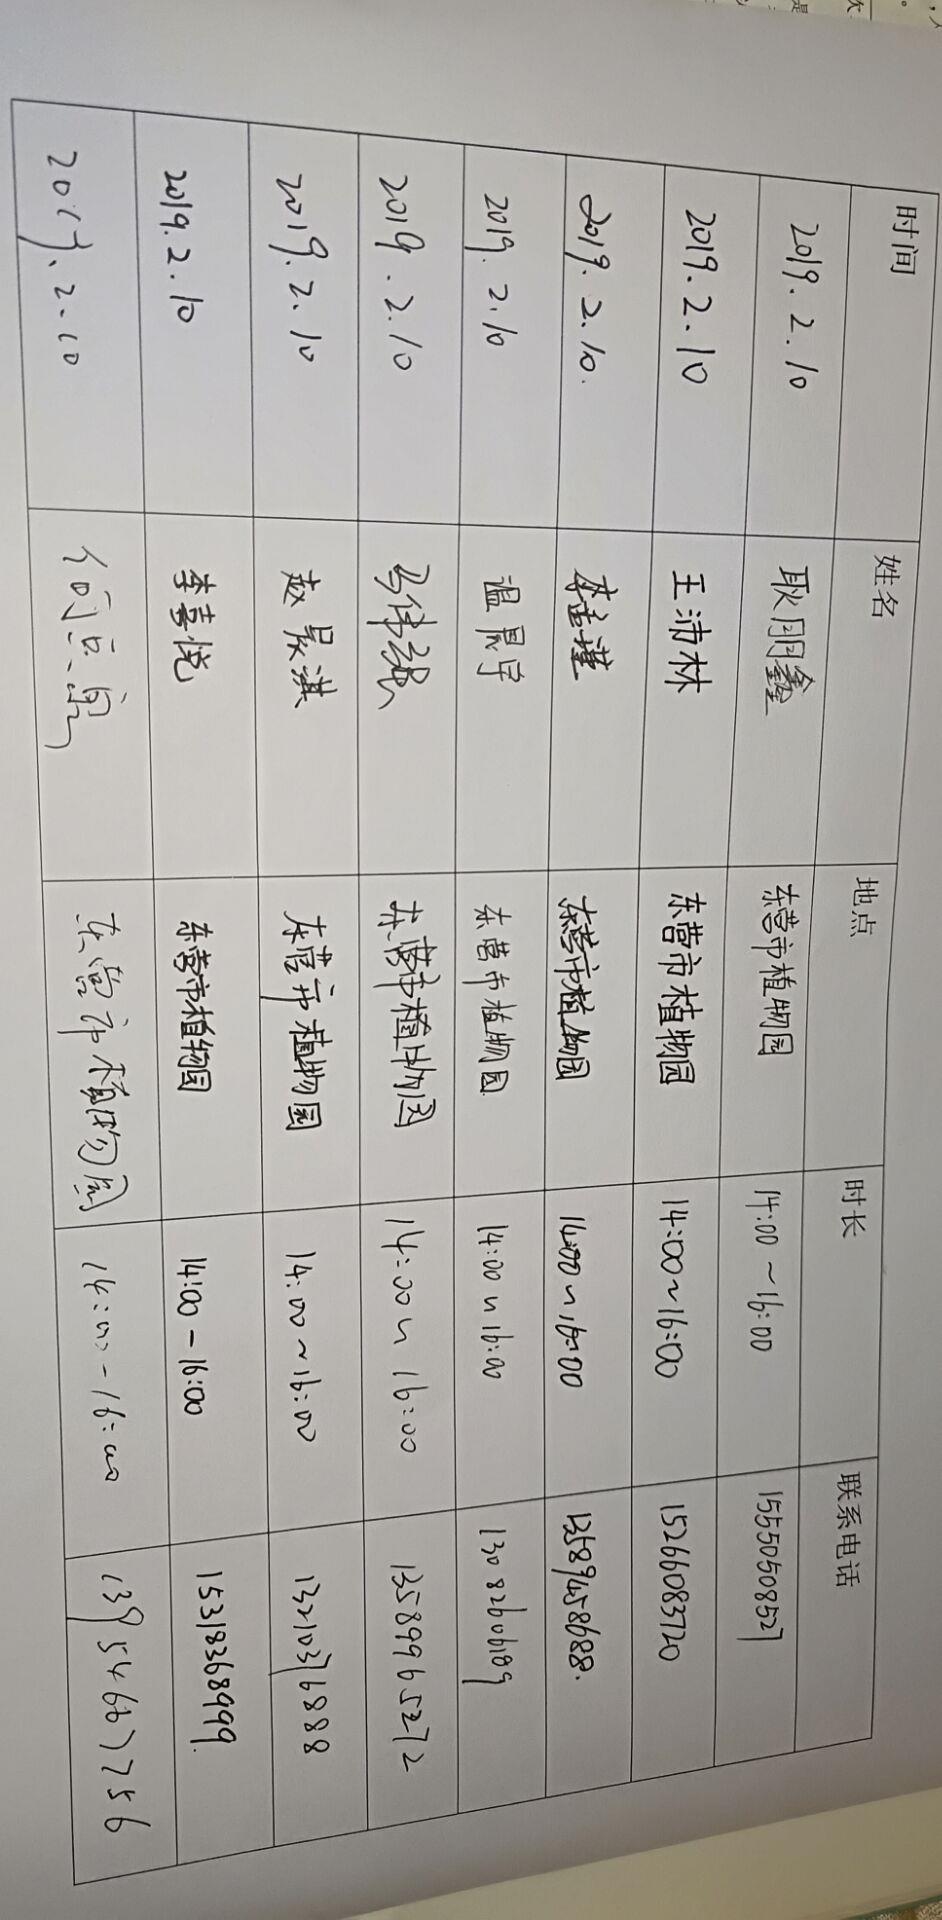 时间 姓名 地点 时长 联系电话
2019.2.10 耿朋鑫 东营市植物园 14:00~16:00 15550508527
2019.2.10 王沛林 东营市植物园 14:00~16:00 15266083720
2019.2.10. 李孟瑾 东营市植物园 14:00~16:00 13589458688.
2019.2.10 温晨宇 东营市植物园 14:00~16:00 13082606189
2019.2.10 马伟强 东营市植物园 14:00~16:00 13589965272
2019.2.10 赵晨淇 东营市植物园 14:00~16:00 13210376888
2019.2.10 李喜悦 东营市植物园 14:00-16:00 15318368999.
2019.2.10 东营市植物园 14:00-16:00 13954667756